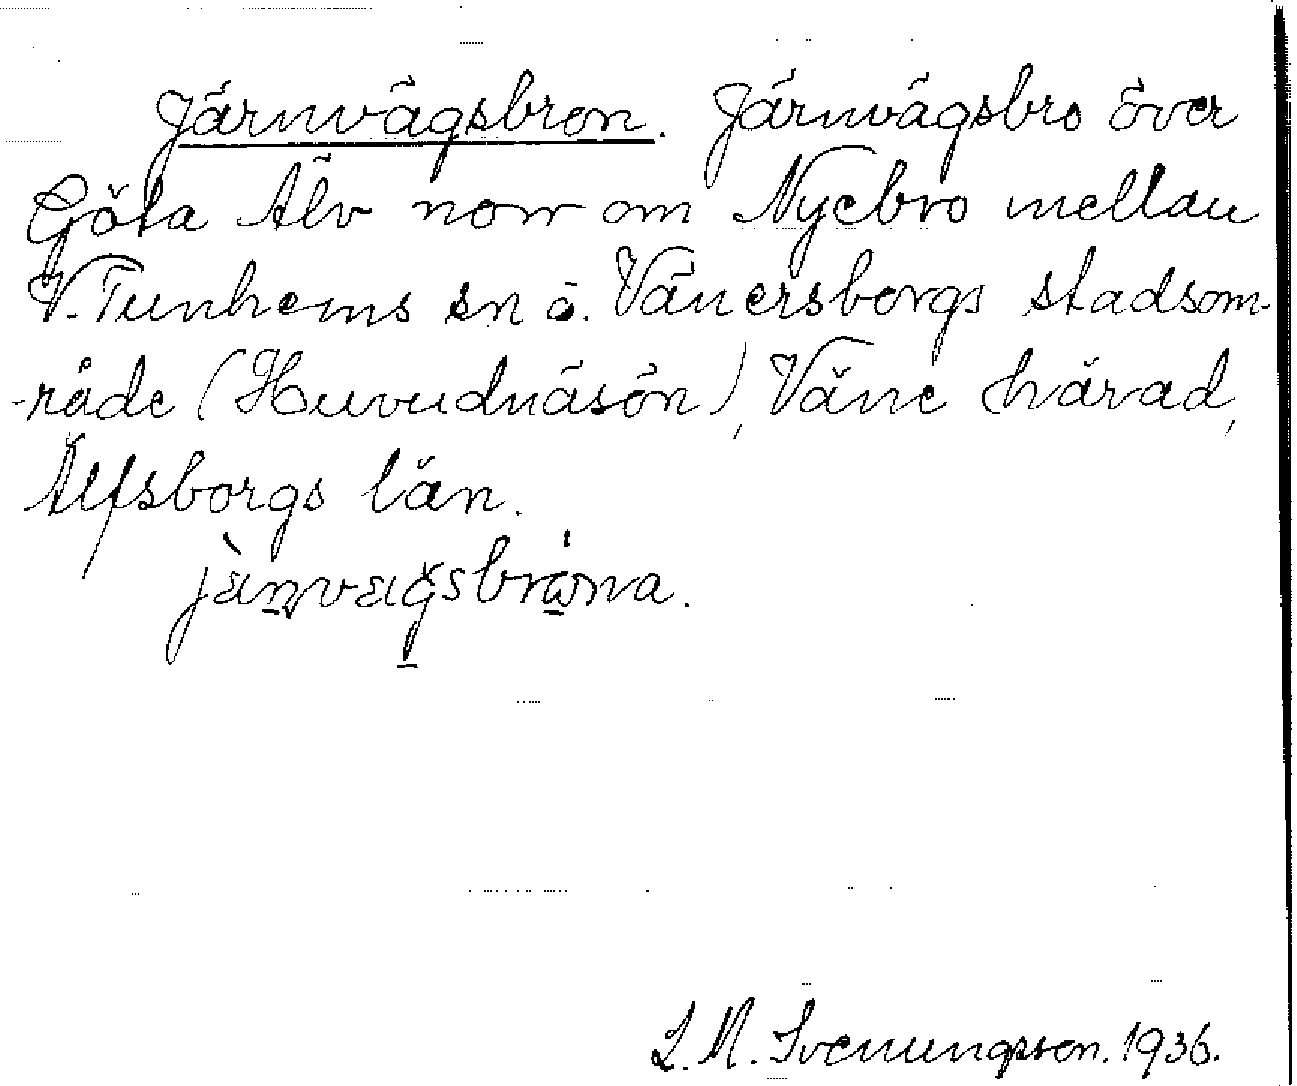 Järnvägsbron. Järnvägsbro över
Göta Älv norr om Nyebro mellan
V. Tunhems sn o. Vänersborgs stadsom-
-råde (Huvudnäsön), Väne härad,
Älfsborgs län.
L. M. Svenungsson. 1936.